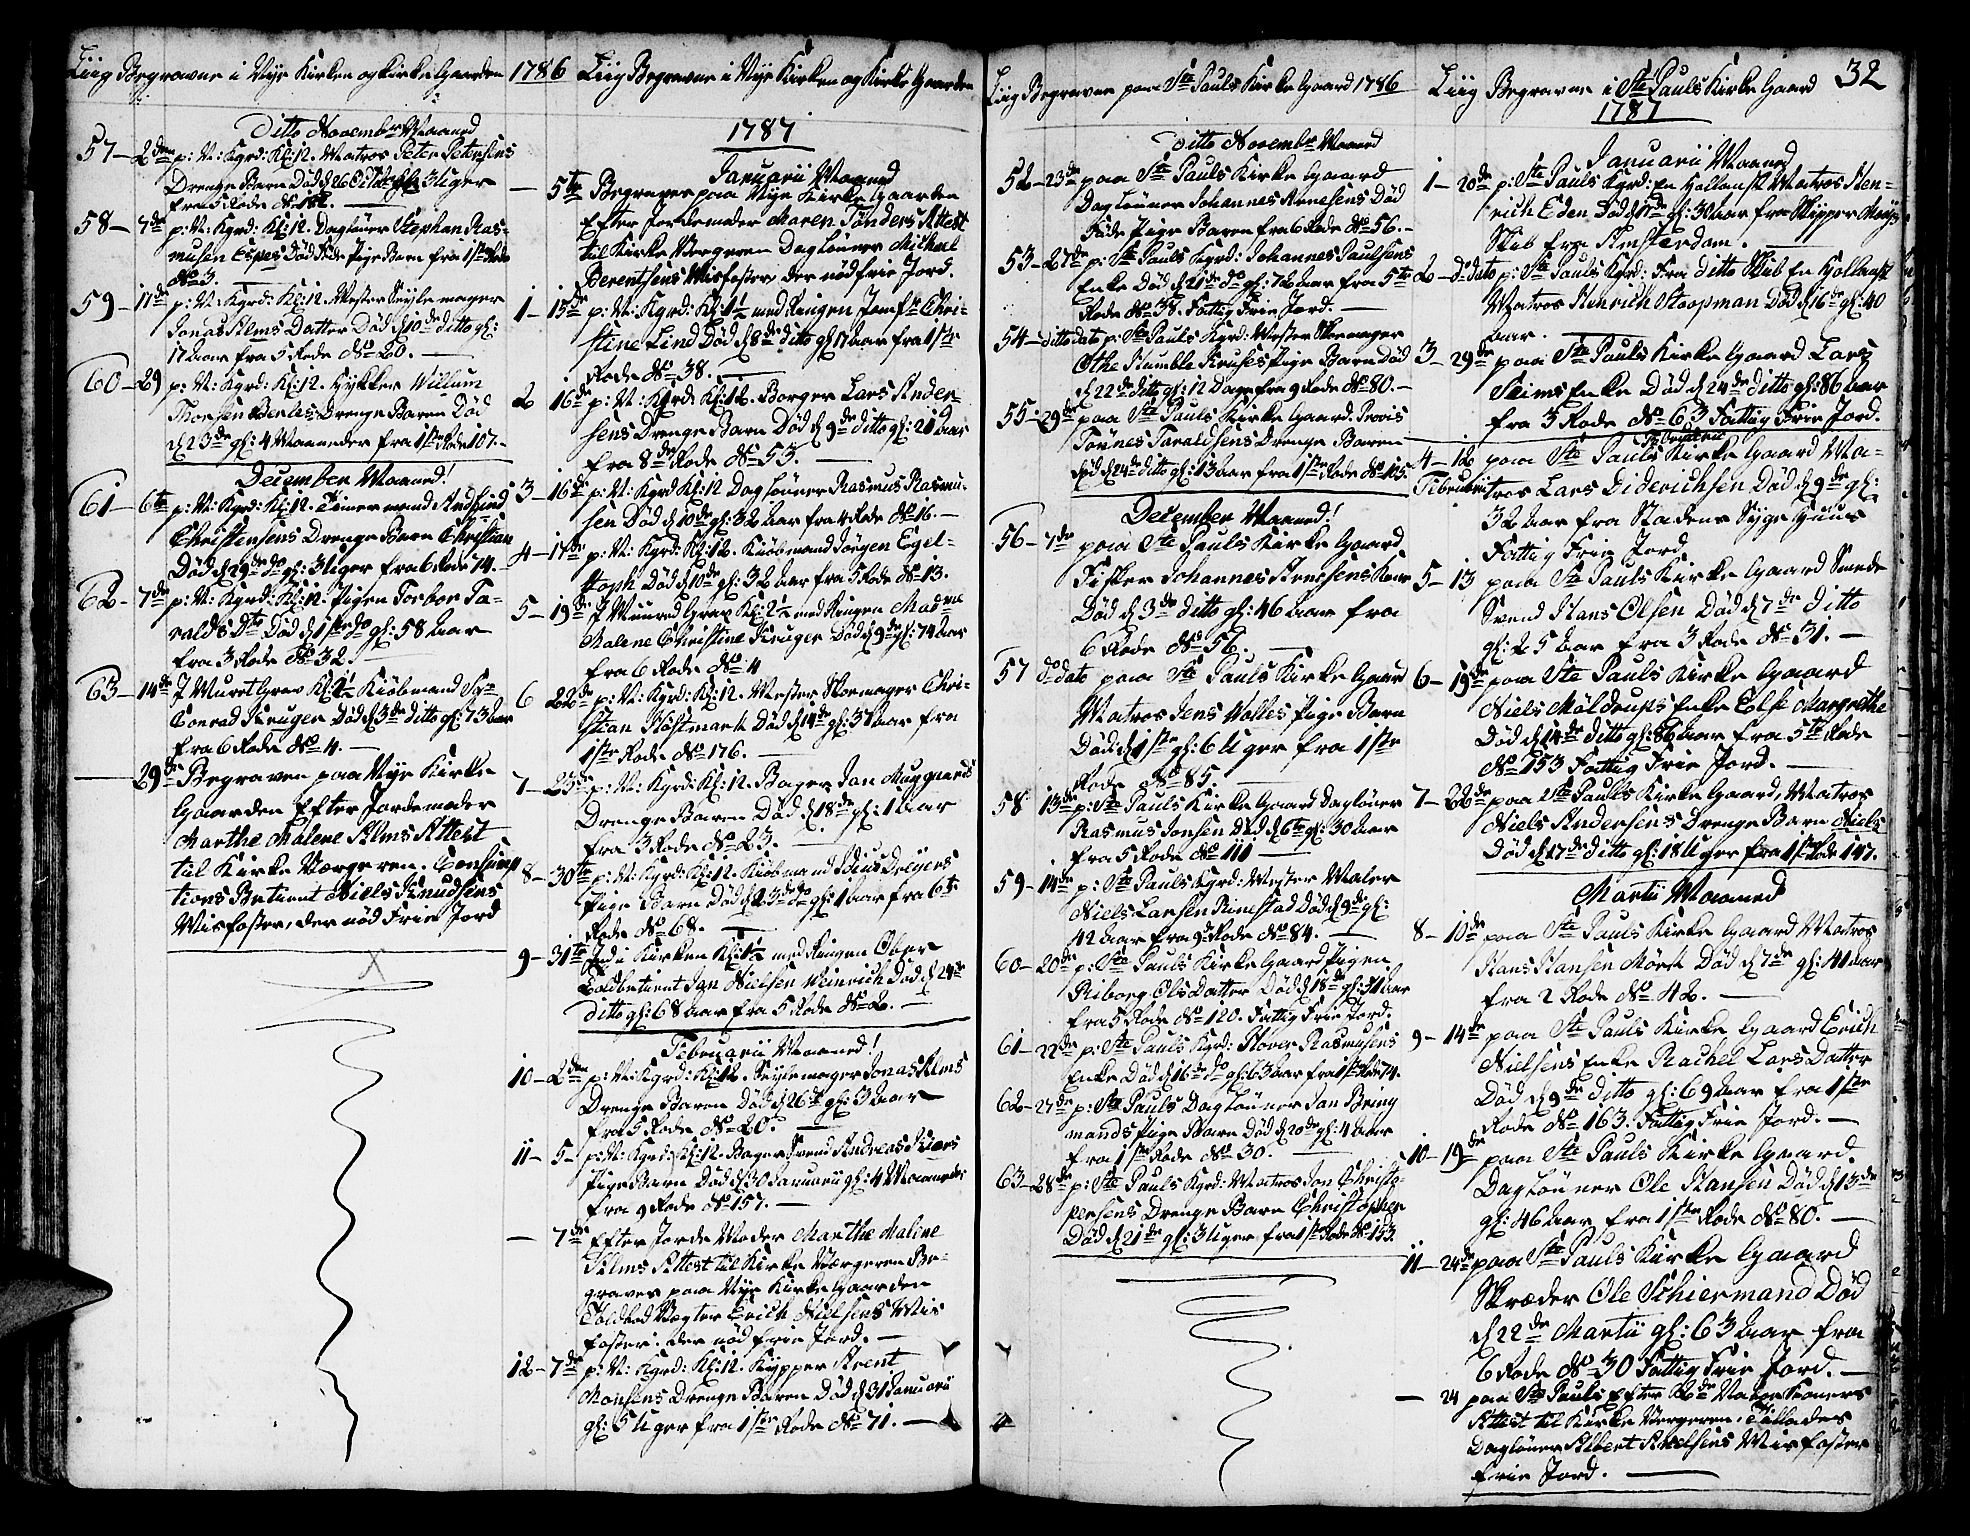 Liig Begravne i Nye Kirken og Kirke Gaarden 1786
Ditto Novembr Maaned
57 – 2den p: N: Kgrd: Kl: 12. Matros Peter Petersens
Drenge Barn Død d 26 gl: 3 Uger
fra 5 Rode No
58 – 7de p: N: Kgrd: Kl: 12. Dagløner Stephan Ras-
musen Espes Død Fødte Pige Barn fra 1ste Rode
No 3.
59 – 17de p: N: Kgrd: Kl: 12. Mester Seylemager
Jonas Alms Datter Død d 10de ditto gl:
17 Aar fra 5 Rode No 20. —
60 – 29 p: N: Kgrd: Kl: 12. Villum
Drenge Barn Død
d 23de gl: 4 Maaneder fra 1ste Rode 107. –
December Maaned!
61 – 6te p: N: Kgrd: Kl: 12. Timermand
Christensens Drenge Barn Christian
Død d 29de do gl: 3 Uger fra 6 Rode 74. –
62 – 7de p: N: Kgrd: Kl: 12. Pigen Torbor Ta-
ralds Dtr Død d 1ste do gl: 58 Aar
fra 3 Rode No 32. —
63 – 14de I Muret Grav Kl: 1½ Kiøbmand
Conrad Kruger Død d 3de ditto gl: 73 Aar
fra 6 Rode No 4. —
— 29de Begraven paa Nye Kirke
Gaarden Efter Jordemoder
Marthe Malene Alms Attest
til Kirke Værgeren. Consump
tions Betient Niels Knudsens
Misfoster, der nød Frie Jord
Liig Begravne i Nye Kirken og Kirke Gaarden
1787
Januarii Maaned
— 5te Begraves paa Nye Kirke Gaarden
Efter Jordemoder Maren Tønders Attest
til Kirke Vergeren Dagløners Michael
Berentsens Misfoster der nød frie Jord.
1 – 15de p: N: Kgrd: Kl: 1½ med Ringen Jomfr Chri-
stine Lind Død d 8de ditto gl: 17 Aar fra 1ste
Rode No 38. —
2 16de p: N: Kgrd: Kl: 12. Borger Lars Ander-
sens Drenge Barn Død d 9de ditto gl: 21 Aar
fra 8de Rode No 53. —
3 – 16de p: N: Kgrd Kl: 12 Dagløner Rasmus Rasmu-
sen Død d 10de gl: 32 Aar fra 4 Rode No 16. –
4 – 17de p: N: Kgrd: Kl: 12. Kiøbmand Jørgen Egel-
Død d 10de gl: 32 Aar fra 5 Rode No 13.
5 – 19de I Muured Grav Kl: 2½ med Ringen Madme
Malene Christine Kruger Død d 9de gl: 74 Aar
fra 6 Rode No 4
6 22de p: N: Kgrd: Kl: 12. Mester Skoemager Chri-
stian Død d 14de gl: 37 Aar fra
1ste Rode No 176. —
7 – 23de p: N: Kgrd: Kl: 12. Bager Jan
Drenge Barn Død d 18de gl: 1 Aar
fra 3 Rode No 23. —
8 – 30te p: N: Kgrd: Kl: 12. Kiøbmand Dreyers
Pige Barn Død d 23de do gl: 1 Aar fra 6te
Rode No 68. —
9 – 31te Jord i Kirken Kl: 1½ med Ringen Ober
Toldbetient Jan Nielsen Weinrich Død d 24de
ditto gl: 68 Aar fra 5 Rode No 2. —
Februarii Maaned!
10 – 2den p: N: Kgrd: Kl: 12. Seylemager Jonas Alms
Drenge Barn Død d 26de gl: 3 Aar
fra 5 Rode No 20. —
11 – 5 – p: N: Kgrd: Kl: 12. Bager Svend Andreas
Pige Barn Død d 30 Januarii gl: 4 Maaneder
fra 9 Rode No 157. —
— 7de Efter Jorde Moder Marthe Maline
Alms Attest til Kirke Værgeren Be-
graves paa Nye Kirke Gaarden
Toldbod Vagter Erich Nielsens Mis
foster. der nød frie Jord. —
12 – 7de p: N: Kgrd: Kl: 12. Kypper
Monsens Drenge Barn Død d 31 Januarii
gl: 5 Uger fra 1ste Rode No 71. —
Liig Begravne paa Ste Pauls Kirke Gaard 1786
Ditto Novembr Maaned
52 – 23de paa Ste Pauls Kirke Gaard
Dagløner Johannes Død
Føde Pige Barn fra 6 Rode No 56. –
53 – 27de p: Ste Pauls Kgrd: Johannes Paulsens
Enke Død d 21de do gl: 72 Aar fra 5te
Rode No 38. Fattig Frie Jord. —
54 – ditto dato p: Ste Pauls Kgrd: Mester Skoemager
Othe Humble Kruses Pige Barn Død
d 22de ditto gl: 12 Dage fra 9 Rode No 80. –
55 – 29de paa Ste Pauls Kirke Gaard.
Tønnes Taraldsens Drenge Barn
Død d 24de ditto gl: 13 Aar fra 1ste Rode No 105.
December Maaned!
56 – 7de paa Ste Pauls Kirke Gaard
Fisker Johannes Kone
Død d 3de ditto gl: 46 Aar fra
6 Rode No 56. —
57 do dato paa Ste Pauls Kirke Gaard
Matros Jens Pige Barn
Død d 1ste gl: 6 Uger fra 1ste
Rode No 85. —
58 13de p: Ste Pauls Kirke Gaard Dagløner
Rasmus Jensen Død d 6te gl: 30 Aar
fra 5 Rode No 111 —
59 – 14de p: Ste Pauls Kgrd: Mester Maler
Niels Larsen Rinestad Død d 9de gl:
42 Aar fra 9de Rode No 84. —
60 – 20de p: Ste Pauls Kirke Gaard Pigen
Riborg Ols Datter Død d 18de gl: 31 Aar
fra 5 Rode No 120. Fattig Frie Jord.
61 – 22de p: Ste Pauls Kgrd: Rasmusens
Enke Død d 16de do gl: 63 Aar fra 1ste Rode 74.
62 – 27de p: Ste Pauls Dagløner Jan Bring
mands Pige Barn Død d 20de gl: 4 Aar
fra 1ste Rode No 30. —
63 – 28de p: Ste Pauls Kgrd: Matros Jon Christo-
persens Drenge Barn Christopher
Død d 21de gl: 3 Uger fra 1ste Rode No 153.
Liig Begravne i Ste Pauls Kirke Gaard 32
1787
Januarii Maaned
1 – 20de p: Ste Pauls Kgrd: En Hollansk Matros Hen-
rich Eden Død d 17de gl: 30 Aar fra Skipper
Skib fra Amsterdam. —
2 – do dato p: Ste Pauls Kgrd: Fra ditto Skib En Hollansk
Matros Henrich Stoopman Død d 16de gl: 40
Aar. —
3 – 29de paa Ste Pauls Kirke Gaard Lars
Enke Død d 24de ditto gl: 86 Aar
fra 3 Rode No 63 Fattig Frie Jord.
Februarii
4 – 12 paa Ste Pauls Kirke Gaard Ma-
Februarii tros Lars Diderichsen Død d 9de gl:
32 Aar fra Stadens Syge Huus
Fattig Frie Jord
5 – 13 paa Ste Pauls Kirke Gaard Smede
Svend Hans Olsen Død d 7de Ditto
gl: 25 Aar fra 3 Rode No 31. —
6 – 19de paa Ste Pauls Kirke Gaard
Niels Møldrups Enke Else Margrethe
Død d 14de ditto gl: 86 Aar fra 5te Rode
No 153 Fattig Frie Jord. —
7 – 22de paa Ste Pauls Kirke Gaard, Matros
Niels Andersens Drenge Barn Niels
Død d 17de ditto gl: 18 Uger fra 1ste Rode 147.
Martii Maaned
8 – 10de paa Ste Pauls Kirke Gaard Matros
Hans Hansen Mørch Død d 7de gl: 41 Aar
fra 2 Rode No 42. —
9 – 14de paa Ste Pauls Kirke Gaard Erich
Nielsens Enke Rachel Lars Datter
Død d 9de ditto gl: 69 Aar fra 1ste
Rode No 163. Fattig Frie Jord. —
10 – 19de paa Ste Pauls Kirke Gaard.
Dagløner Ole Hansen Død d 13de
gl: 46 Aar fra 1ste Rode No 80. —
11 – 24de paa Ste Pauls Kirke Gaard
Skræder Ole Schiermand Død
d 22de Martii gl: 63 Aar fra
6 Rode No 30 Fattig Frie Jord. —
— 24 paa Ste Pauls Efter
Attest til Kirke Vergeren. Tillades
Dagløner Albert Misfoster
frie Jord. —